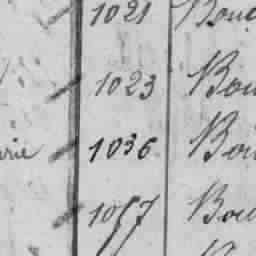 1021 Bouc
1023 Bou
rie 1036 Bou
1057 Bou